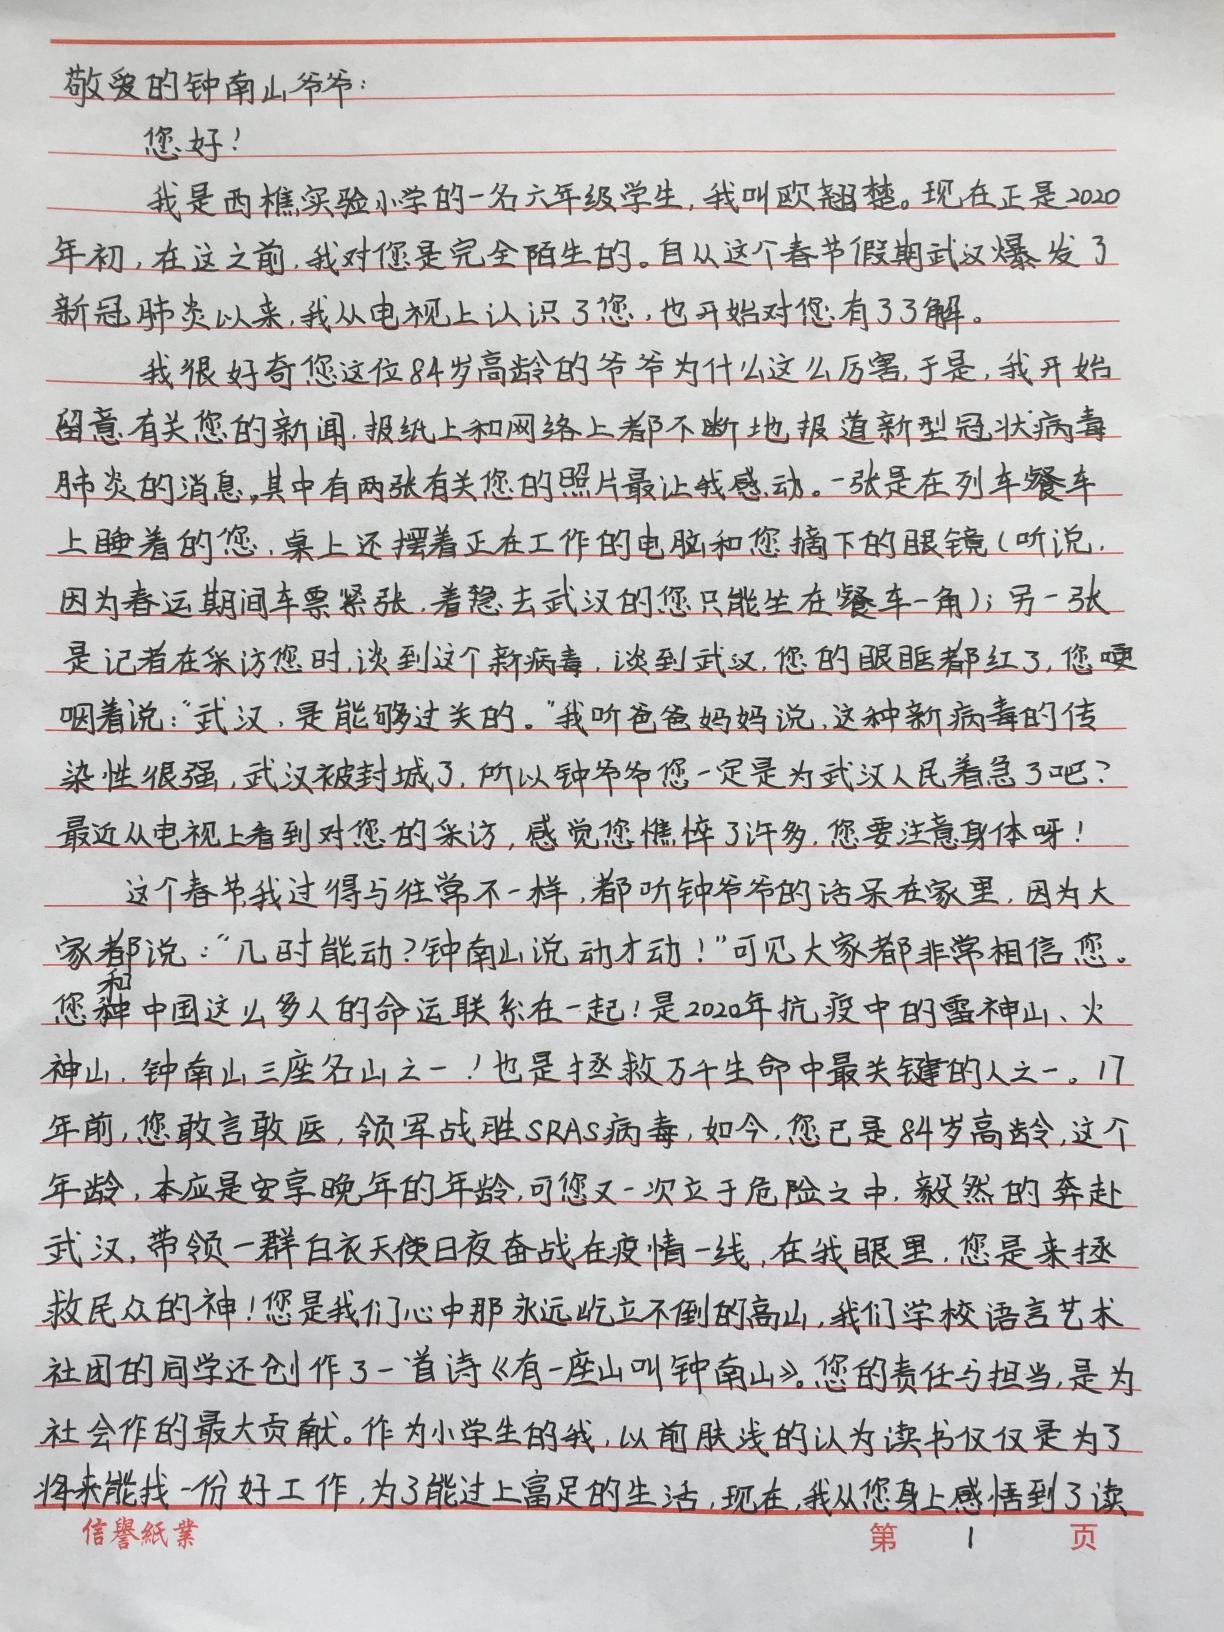 敬爱的钟南山爷爷：
您好！
我是西樵实验小学的一名六年级学生，我叫欧翘楚。现在正是2020
年初，在这之前，我对您是完全陌生的。自从这个春节假期武汉爆发了
新冠肺炎以来，我从电视上认识了您，也开始对您有了了解。
我很好奇您这位84岁高龄的爷爷为什么这么厉害，于是，我开始
留意有关您的新闻，报纸上和网络上都不断地报道新型冠状病毒
肺炎的消息，其中有两张有关您的照片最让我感动。一张是在列车餐车
上睡着的您，桌上还摆着正在工作的电脑和您摘下的眼镜（听说，
因为春运期间车票紧张，着急去武汉的您只能坐在餐车一角）；另一张
是记者在采访您时，谈到这个新病毒，谈到武汉，您的眼眶都红了，您哽
咽着说：“武汉，是能够过关的。”我听爸爸妈妈说，这种新病毒的传
染性很强，武汉被封城了，所以钟爷爷您一定是为武汉人民着急了吧？
最近从电视上看到对您的采访，感觉您憔悴了许多，您要注意身体呀！
这个春节，我过得与往常不一样，都听钟爷爷的话呆在家里，因为大
家都说：“几时能动？钟南山说动才动！”可见大家都非常相信您。
您和中国这么多人的命运联系在一起！是2020年抗疫中的雷神山、火
神山，钟南山三座名山之一！也是拯救万千生命中最关键的人之一。17
年前，您敢言敢医，领军战胜SRAS病毒，如今，您已是84岁高龄，这个
年龄，本应是安享晚年的年龄，可您又一次立于危险之中，毅然的奔赴
武汉，带领一群白衣天使日夜奋战在疫情一线，在我眼里，您是来拯
救民众的神！您是我们心中那永远屹立不倒的高山，我们学校语言艺术
社团的同学还创作了一首诗《有一座山叫钟南山》。您的责任与担当，是为
社会作的最大贡献。作为小学生的我，以前肤浅的认为读书仅仅是为了
将来能找一份好工作，为了能过上富足的生活，现在，我从您身上感悟到了读
信誉紙業 第 1 页